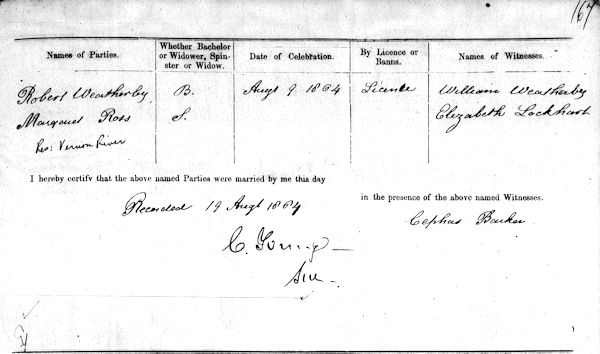 167
Names of Parties. Whether Bachelor or Widower, Spinster or Widow. Date of Celebration. By Licence or Banns. Names of Witnesses.
Robert Weatherby B. Augt 9. 1864 Licence William Weatherby
Margaret Ross S. Elizabeth Lockhart
Res: Vernon River
I hereby certify that the above named Parties were married by me this day
in the presence of the above named Witnesses.
Recorded 19 Augt 1864
Cephas Barker
C. Young